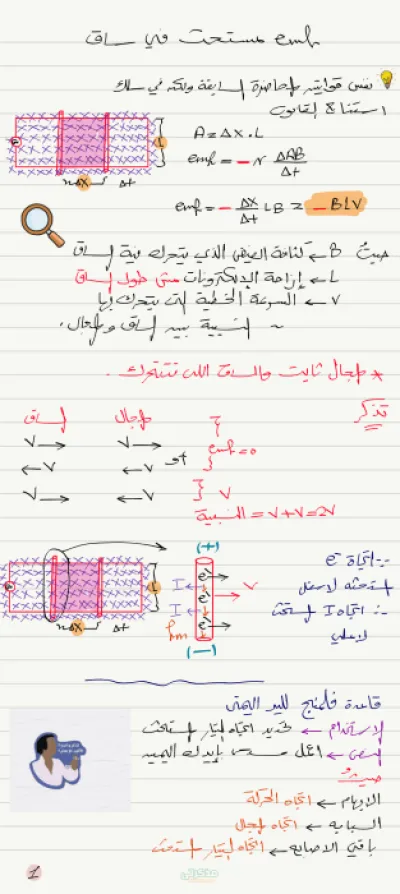 emf مستحث في ساق
نفس قوانين المحاضرة السابقة ولكن في سلك
استنتاج القانون
A = ΔX . L
emf = - N ΔAB / Δt
emf = - ΔX / Δt LB = - BLV
L
ΔX Δt
حيث B ← كثافة الفيض الذي يتحرك فيه الساق
L ← إزاحة الإلكترونات مش طول الساق
V ← السرعة الخطية التي يتحرك بها
~ النسبية بين الساق والمجال.
* المجال ثابت والساق اللي تتحرك.
تذكر
الساق المجال
V → V →
← V ← V
emf = 0
V → ← V
النسبية = V + V = 2V
(+)
L
ΔX Δt
I e⁻
I e⁻
e⁻
V
fm
(-)
∴ اتجاه e⁻
المستحثه لاسفل
∴ اتجاه I المستحث
لاعلي
قاعدة فلمنج لليد اليمنى
الاستخدام ← تحديد اتجاه التيار المستحث
النص ← اعمل مسدس بإيدك اليمين
حيث
الابهام ← اتجاه الحركة
السبابه ← اتجاه المجال
باقي الاصابع ← اتجاه التيار المستحث
مذكرتي
1